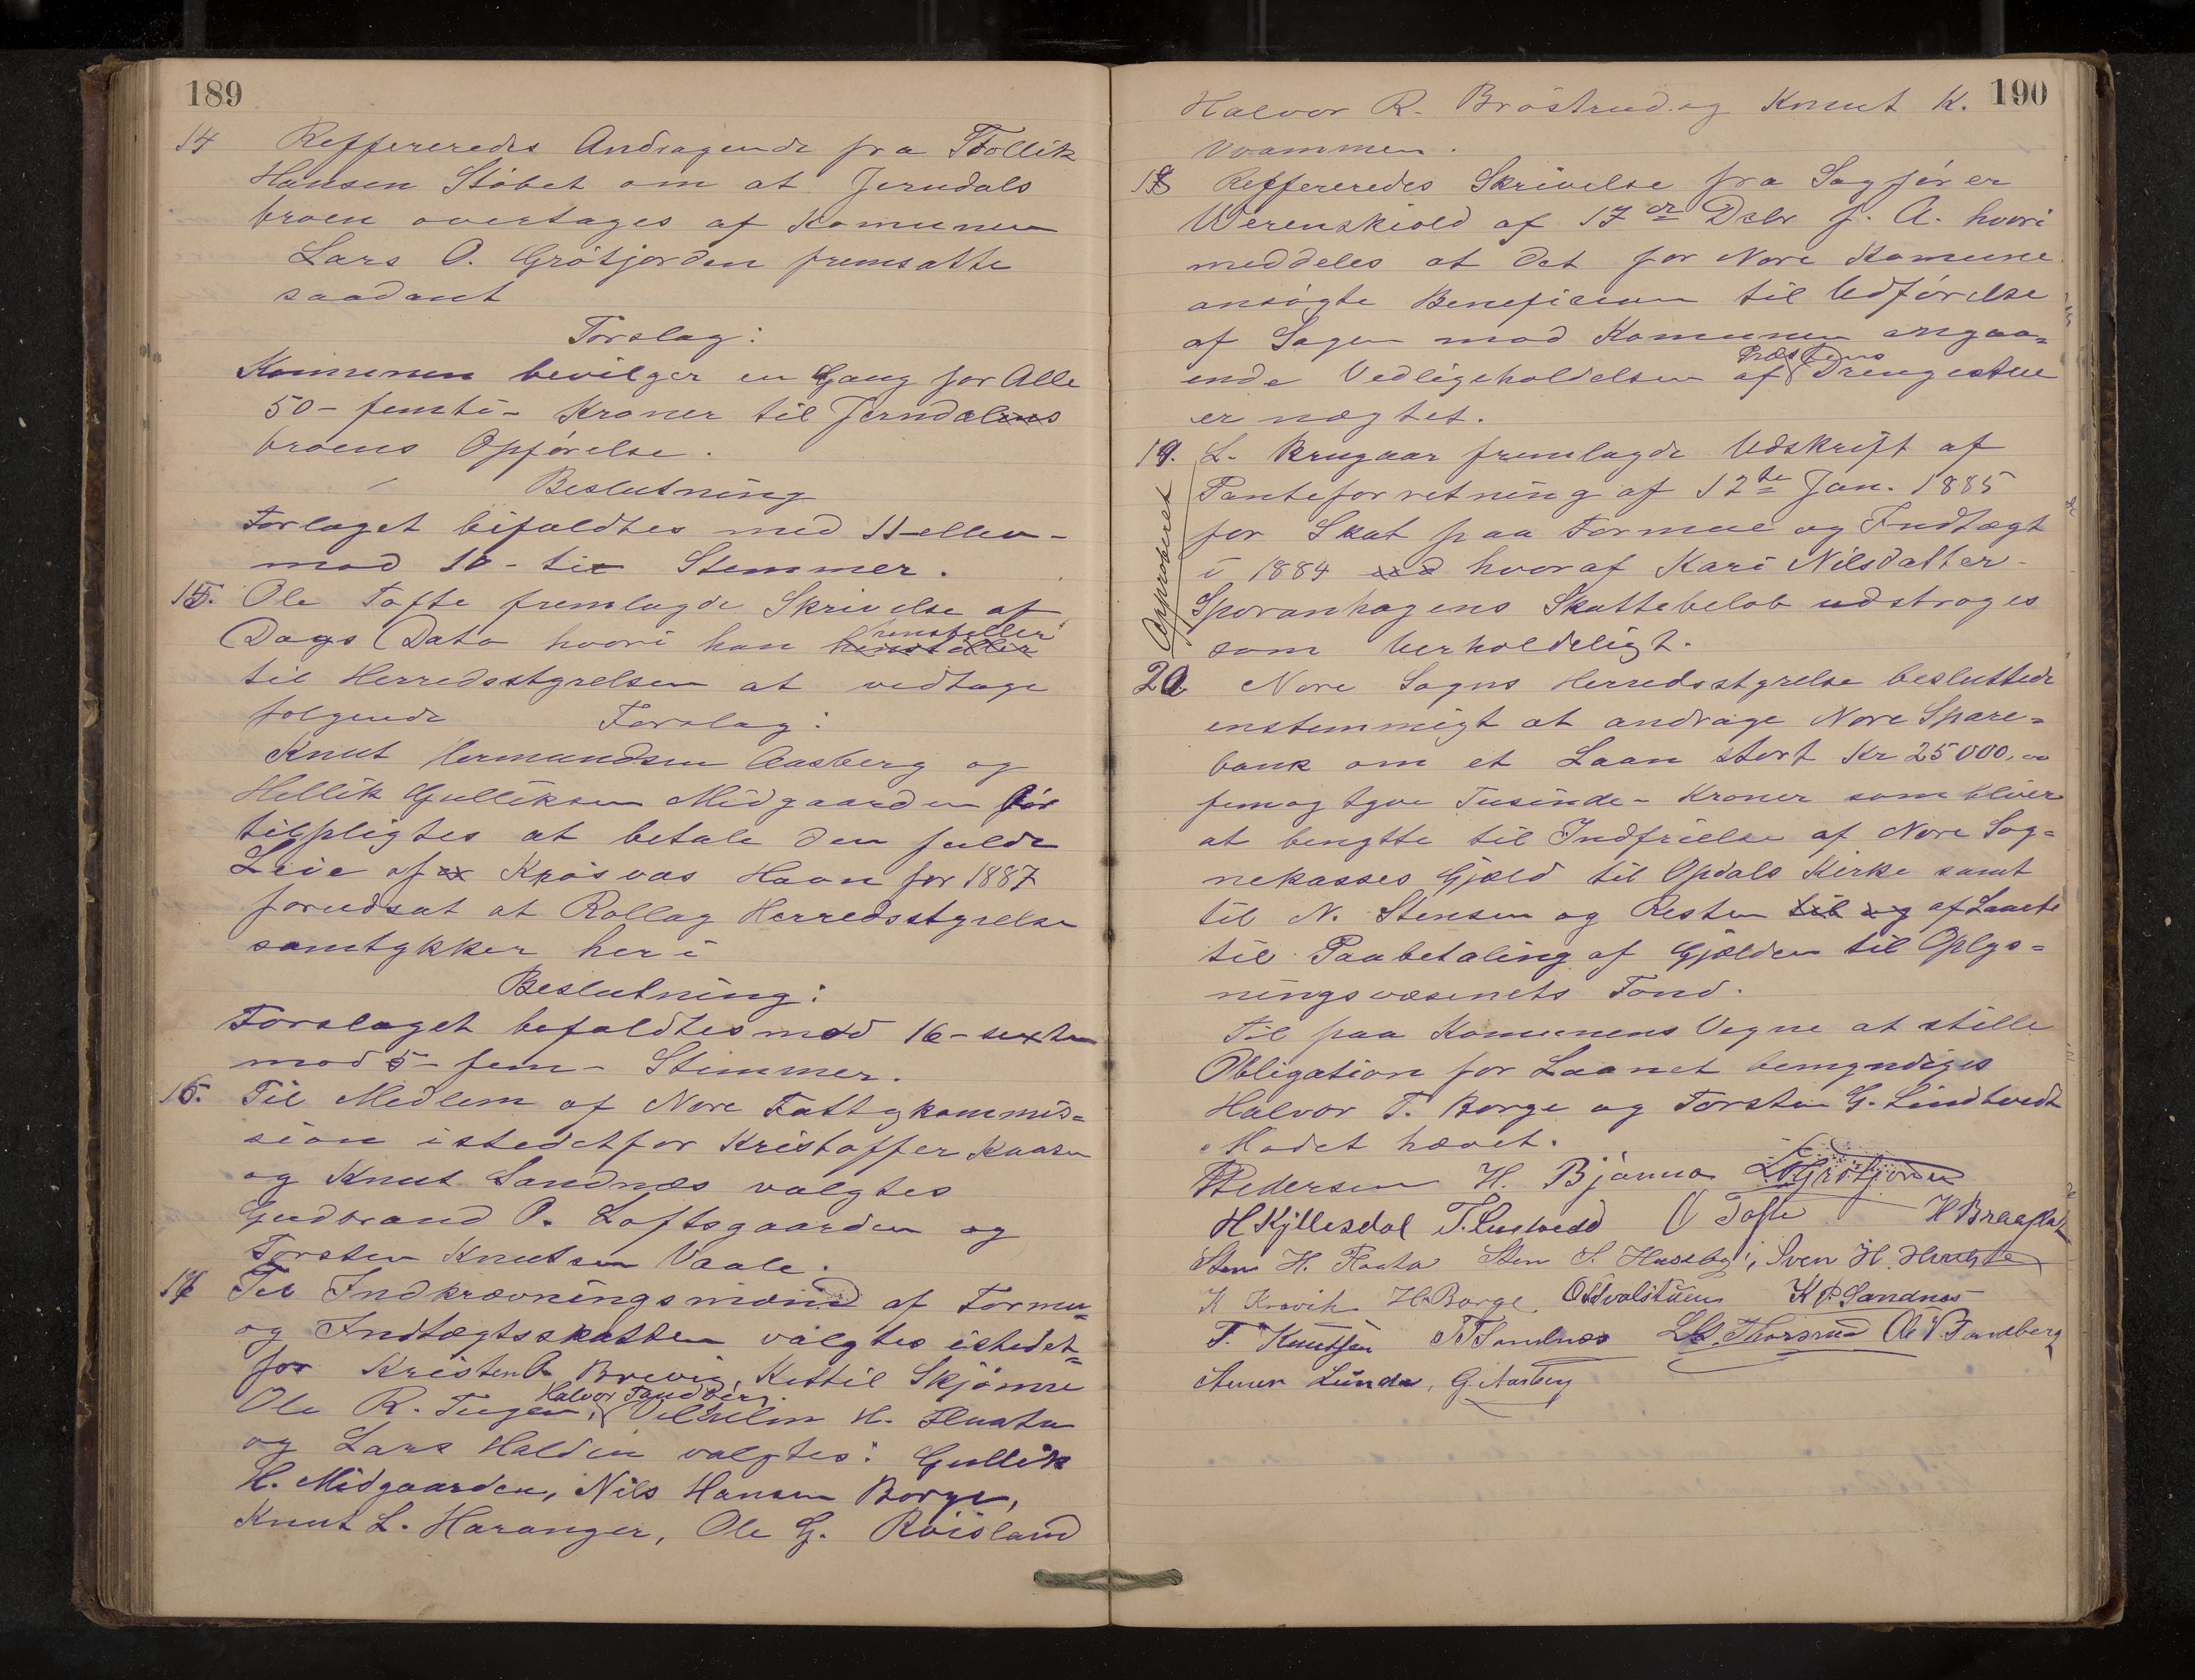 189
14 Reffereredes Andragende fra Tollik
Hansen Støbet om at Jerndals
broen overtages af Komunen
Lars O. Grøtjorden fremsatte
saadant
Forslag:
Komunen bevilger en Gang for Alle
50- femti- Kroner til Jerndals
broens Opførelse.
Beslutning
Forlaget bifaldtes med 11-ellev-
mod 10-ti Stemmer.
15. Ole Tofte fremlagde Skrivelse af
Dags Dato hvori han henstiller
til Herredsstyrelsen at vedtage
følgende Forslag:
Knut Hermundsen Aasberg og
Hellik Gulliksen Midgaarden bør
tilpligtes at betale den fulde
Leie af Krøsvas Havn for 1887
forudsat at Rollag Herredsstyrelse
samtykker heri
Beslutning:
Forslaget befaldtes mod 16-sexten
mod 5- fem- Stemmer.
16. Til Medlem af Nore Fattigkommis=
sion istedetfor Kristoffer Kaasen
og Knut Sandnæs valgtes
Gudbrand O. Loftsgaarden og
Torsten Knutsen Vaale.
17 Til Indkrævningsmænd af Formu=
og Indtægtsskatten valgtes istedet=
for Kristen A. Brevig, Kettil Skjønne
Ole R. Teigen, Halvor Sandberg, Vilhelm H. Flaata
og Lars Haldin valgtes: Gullik
H. Midgaarden, Nils Hansen Borge,
Knut L. Haranger, Ole G. Røisland
190
Halvor R. Brøstrud og Knut K.
Vrammen.
18 Reffereredes Skrivelse fra Sagfører
Werenskiold af 17de Dcbr f. A. hvori
meddeles at det for Nore Komune
ansøgte Beneficium til Udførelse
af Sagen mod Komunen angaa=
ende Vedligeholdelsen af Præstens Drengestue
er nægtet.
19. L. Brugaar fremlagde Udskrift af
Panteforretning af 12te Jan. 1885
for Skat paa Formue og Indtægt
i 1884 hvoraf Kari Nilsdatter
Sporanhagens Skattebeløb udstroges
som Uerholdeligt.
Approberet
20 Nore Sogns Herredsstyrelse besluttede
enstemmigt at andrage Nore Spare=
bank om et Laan stort Kr 25000,00
femogtyve Tusinde- Kroner som bliver
at benytte til Indfrielse af Nore Sog=
nekasses Gjæld til Opdals Kirke samt
til N. Stensen og Resten af Laanet
til Paabetaling af Gjælden til Oplys=
ningsvæsenets Fond.
Til paa Komunens Vegne at stille
Obligation for Laanet bemyndiges
Halvor T. Borge og Torsten G. Lindtvedt
Mødet hævet.
Pedersen H. Bjønna LOGrøtjorden
H Kjillesdal T. Lintvedt O Tofte H Braaflat
Sten H. Flaata Sten S. Haseby, Sven H.
K Kravik H. Borge K P. Sandnæs
T. Knudsen T. Sandnæs L. Thorsrud Ole V. Sandberg
Stener Lunde, G. Aasberg